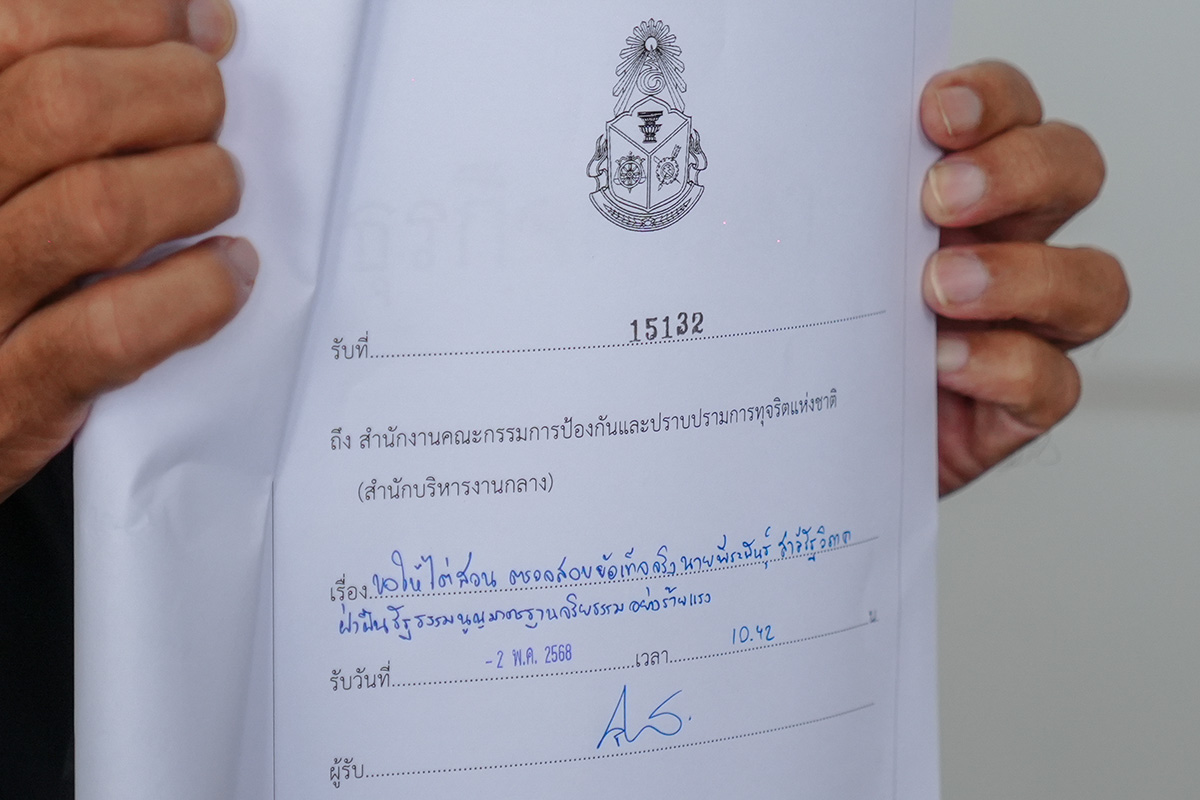 รับที่ 15132
ถึง สำนักงานคณะกรรมการป้องกันและปราบปรามการทุจริตแห่งชาติ
(สำนักบริหารงานกลาง)
เรื่อง ขอให้ไต่สวน ตรวจสอบข้อเท็จจริง นายพีระพันธุ์ สาลีรัฐวิภาค
ฝ่าฝืนรัฐธรรมนูญมาตรฐานจริยธรรมอย่างร้ายแรง
รับวันที่ -2 พ.ค. 2568 เวลา 10.42 น.
ผู้รับ